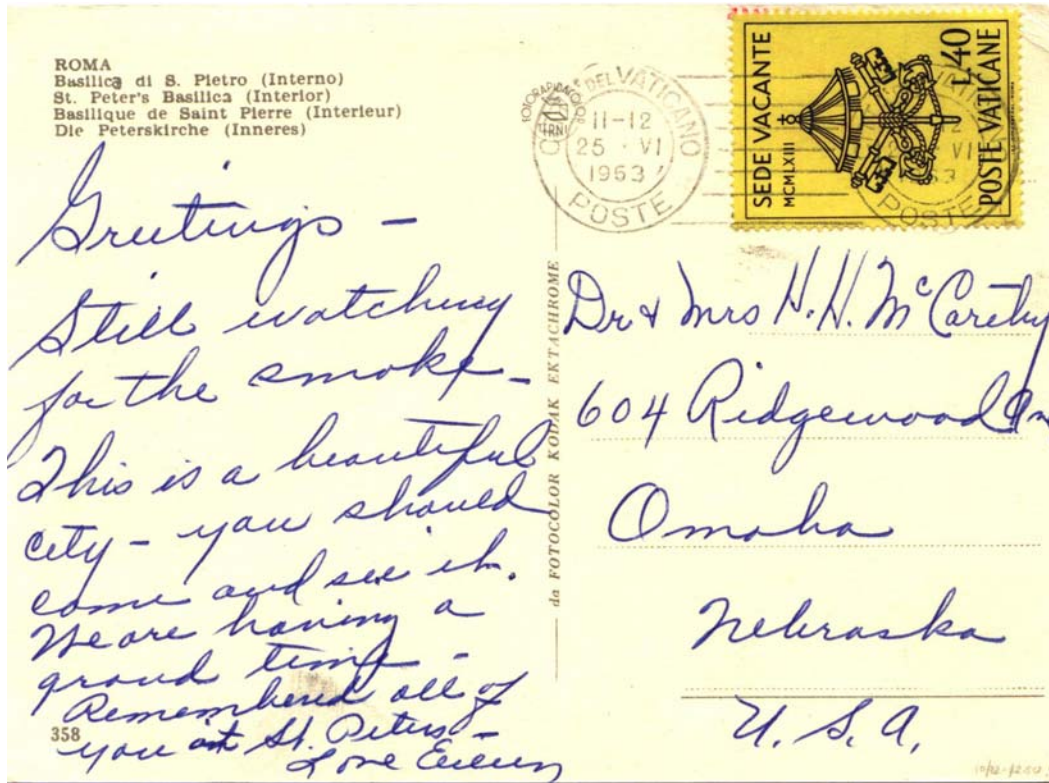 ROMA
Basilica di S. Pietro (Interno)
St. Peter's Basilica (Interior)
Basilique de Saint Pierre (Interieur)
Die Peterskirche (Inneres)
Greetings -
Still watching
for the smoke -
This is a beautiful
city - you should
come and see it.
We are having a
grand time -
Remembered all of
you at St. Peters -
Love Eileen
358
da FOTOCOLOR KODAK EKTACHROME
DEL VATICANO
11-12
25 · VI
1963
POSTE
SEDE VACANTE
MCMLXIII
L.40
POSTE VATICANE
Dr & Mrs H. H. McCarthy
604 Ridgewood
Omaha
Nebraska
U. S. A.